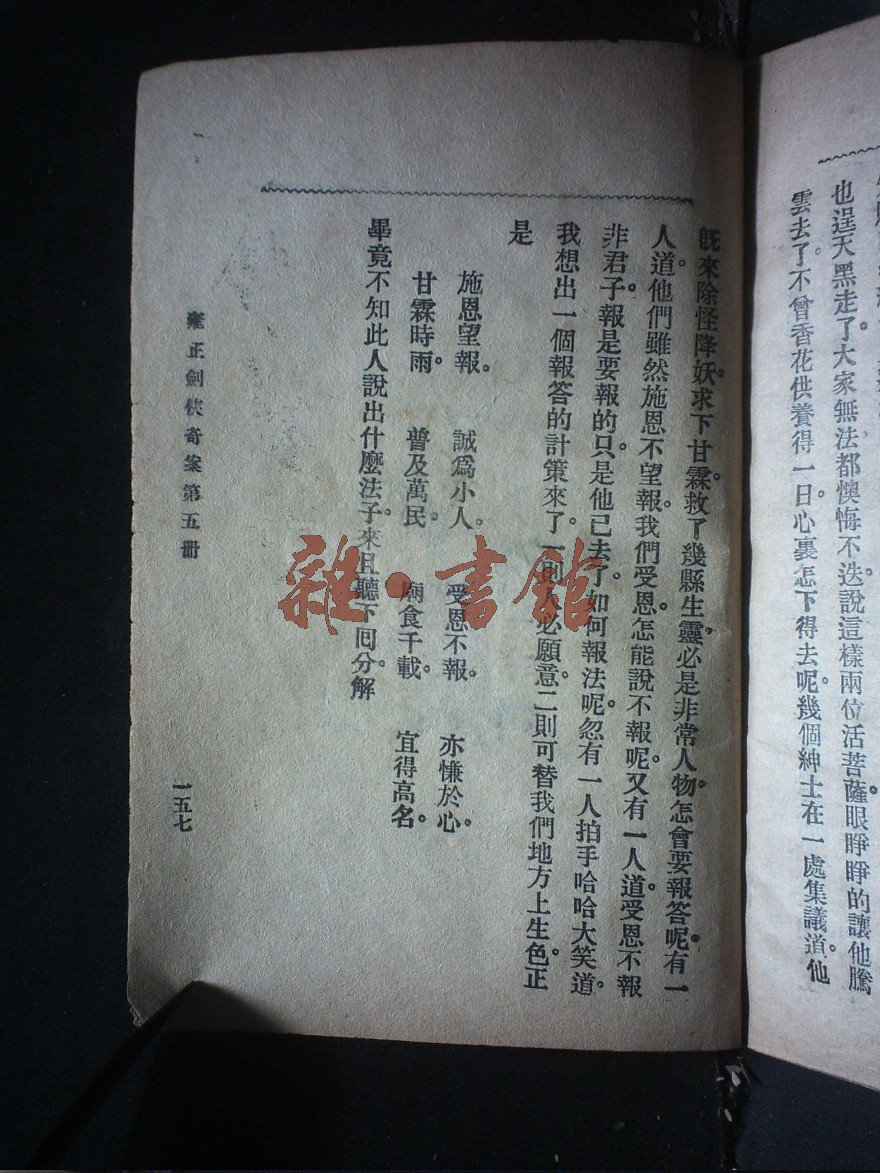 也逞天黑走了。大家無法都懊悔不迭說這樣兩位活菩薩。眼睜睜的讓他騰
雲去了。不曾香花供養得一日。心裏怎下得去呢。幾個紳士在一處集議道。他
既來除怪降妖。求下甘霖。救了幾縣生靈。必是非常人物。怎會要報答呢。有一
人道。他們雖然施恩不望報。我們受恩。怎能說不報呢。又有一人道。受恩不報
非君子。報是要報的。只是他已去了。如何報法呢。忽有一人拍手哈哈大笑道。
我想出一個報答的計策來了。一則人必願意。二則可替我們地方上生色。正
是
施恩望報。 誠爲小人。 受恩不報。 亦慊於心。
甘霖時雨。 普及萬民。 廟食千載。 宜得高名。
畢竟不知此人說出什麼法子。來且聽下囘分。解
雍正劍俠奇案第五册
一五七
雜·書館